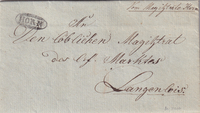 Vom Magistrate Horn
HORN
An
Den löblichen Magistrat
des l.f. Marktes
Langenlois